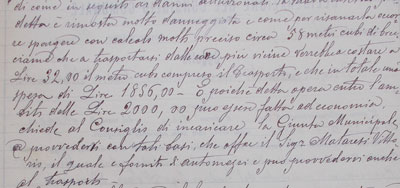 di come in seguito ai danni
detta è rimasta molto danneggiata e come per risanarla
re spargere con calcolo molto preciso circa 58 metri cubi di brec
ciame che a trasportarsi dalle più vicine verrebbe a costare a
Lire 32,00 il metro cubo compreso il trasporto, e che in totale una
spesa di Lire 1856,00. E poichè detta opera entro l'am
bito delle Lire 2000,00 può esser fatta ad economia,
chiede al Consiglio di incaricare la Giunta Municipale
a provvedervi con tali basi, che offre il Sigr Mataresi Vitto
rio, il quale è fornito di automezzi e può provvedervi anche
al trasporto.